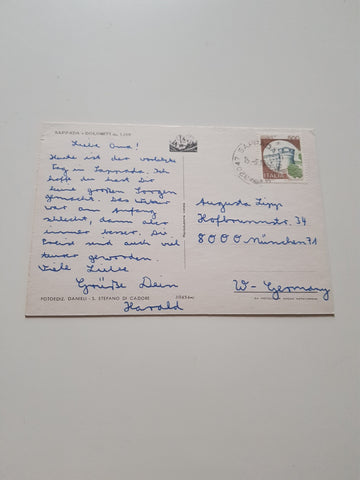 SAPPADA - DOLOMITI m. 1.250
Liebe Oma!
Heute ist der vorletzte
Tag in Sappada. Ich
hoff du hast Dir
keine großen Sorgen
gemacht. Das Wetter
war am Anfang
schlecht, dann aber
immer besser. Die
Preise sind auch viel
teurer geworden.
Viele Liebe
Grüße Dein
Harald
FOTOEDIZ. DANIELI - S. STEFANO DI CADORE
ITALIA
Augusta Lipp
Hofbrunnstr. 34
8000 München 71
W- Germany